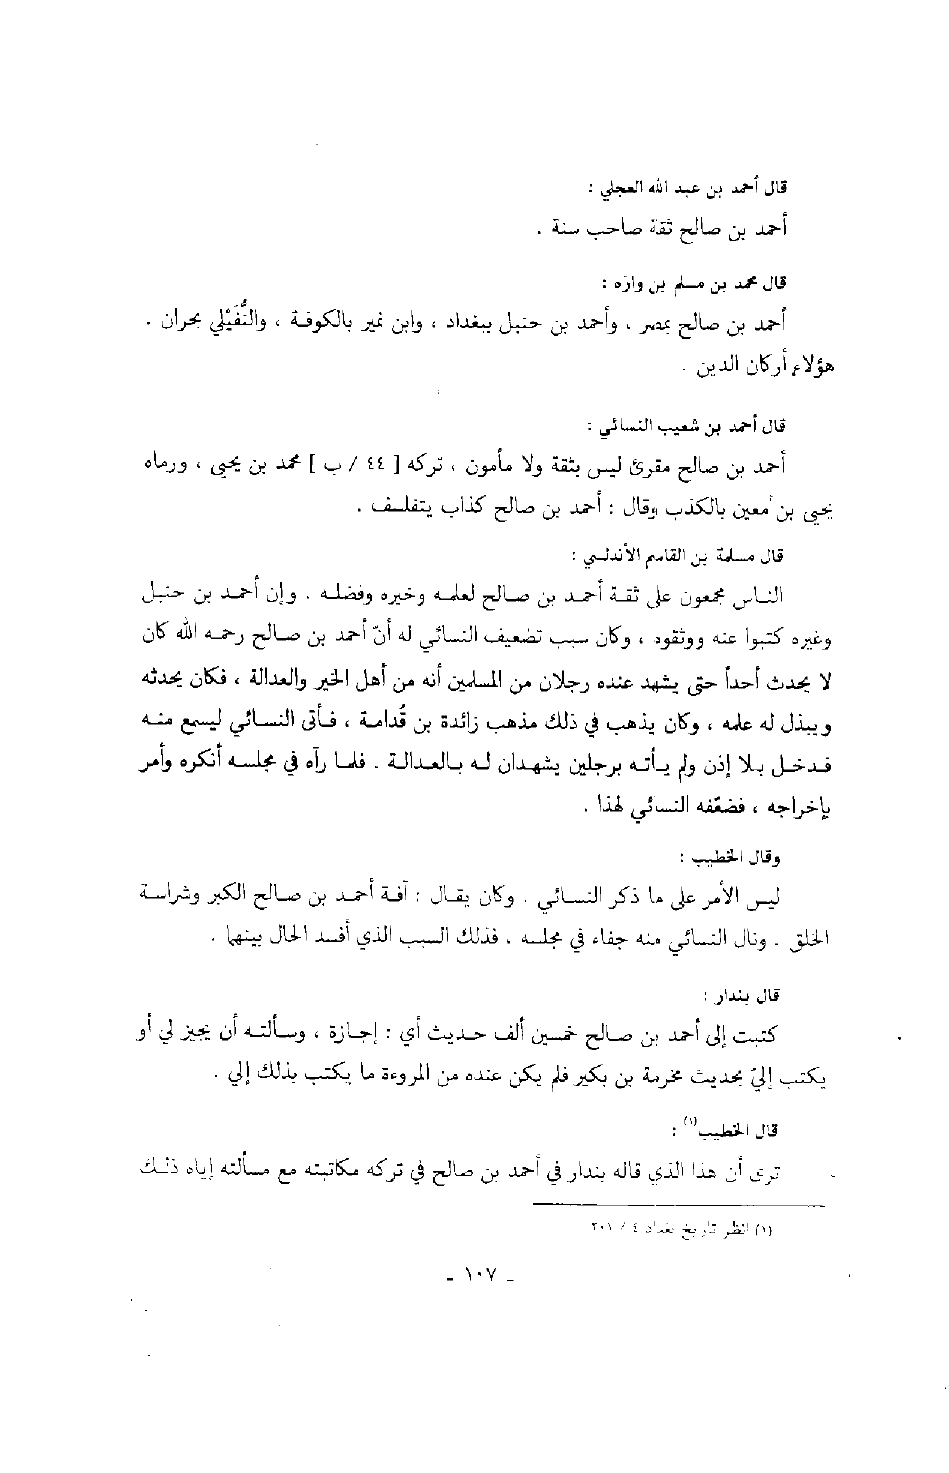 قال أحمد بن عبد الله العجلي :
أحمد بن صالح ثقة صاحب سنة .
قال محمد بن مسلم بن وازه :
أحمد بن صالح بمصر ، وأحمد بن حنبل ببغداد ، وابن نمير بالكوفة ، والنُّفَيْلي بحران .
هؤلاء أركان الدين .
قال أحمد بن شعيب النسائي :
أحمد بن صالح مقرئ ليس بثقة ولا مأمون ، تركه [ ٤٤ / ب ] محمد بن يحيى ، ورماه
يحيى بن معين بالكذب وقال : أحمد بن صالح كذاب يتفلسف .
قال مسلمة بن القاسم الأندلسي :
الناس مجمعون على ثقة أحمد بن صالح لعلمه وخيره وفضله . وإن أحمد بن حنبل
وغيره كتبوا عنه ووثقوه ، وكان سبب تضعيف النسائي له أنّ أحمد بن صالح رحمه الله كان
لا يحدث أحداً حتى يشهد عنده رجلان من المسلمين أنه من أهل الخير والعدالة ، فكان يحدثه
ويبذل له علمه ، وكان يذهب في ذلك مذهب زائدة بن قُدامة ، فأتى النسائي ليسمع منه
فدخل بلا إذن ولم يأته برجلين يشهدان له بالعدالة . فلما رآه في مجلسه أنكره وأمر
بإخراجه ، فضعّفه النسائي لهذا .
وقال الخطيب :
ليس الأمر على ما ذكر النسائي . وكان يقال : آفة أحمد بن صالح الكبر وشراسة
الخلق . ونال النسائي منه جفاء في مجلسه ، فذلك السبب الذي أفسد الحال بينهما .
قال بندار :
كتبت إلى أحمد بن صالح خمسين ألف حديث أي : إجازة ، وسألته أن يجيز لي أو
يكتب إليّ بحديث مخرمة بن بكير فلم يكن عنده من المروءة ما يكتب بذلك إلي .
قال الخطيب(١) :
ترى أن هذا الذي قاله بندار في أحمد بن صالح في تركه مكاتبته مع مسألته إياه ذلك
(١) انظر تاريخ بغداد ٤ / ٢٠١
- ١٠٧ -